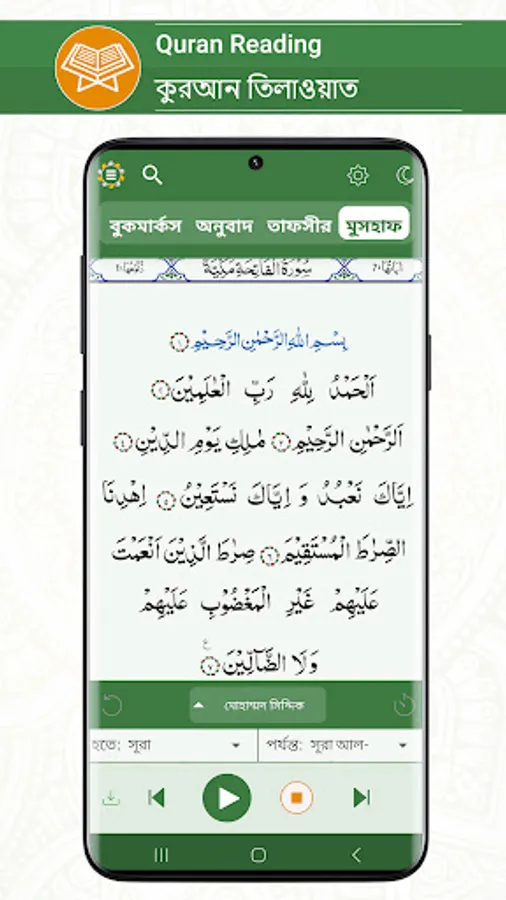 Quran Reading
কুরআন তিলাওয়াত
বুকমার্কস অনুবাদ তাফসীর মুসহাফ
سُوْرَةُ الْفَاتِحَةِ مَكِّيَّةٌ
بِسْمِ اللهِ الرَّحْمٰنِ الرَّحِيْمِ ١
اَلْحَمْدُ لِلّٰهِ رَبِّ الْعٰلَمِيْنَ ٢
الرَّحْمٰنِ الرَّحِيْمِ ٣ مٰلِكِ يَوْمِ الدِّيْنِ ٤
اِيَّاكَ نَعْبُدُ وَ اِيَّاكَ نَسْتَعِيْنُ ٥ اِهْدِنَا
الصِّرَاطَ الْمُسْتَقِيْمَ ٦ صِرَاطَ الَّذِيْنَ اَنْعَمْتَ
عَلَيْهِمْ غَيْرِ الْمَغْضُوْبِ عَلَيْهِمْ
وَلَا الضَّآلِّيْنَ ٧
মোহাম্মদ সিদ্দিক
হতে: সূরা পর্যন্ত: সূরা আল-